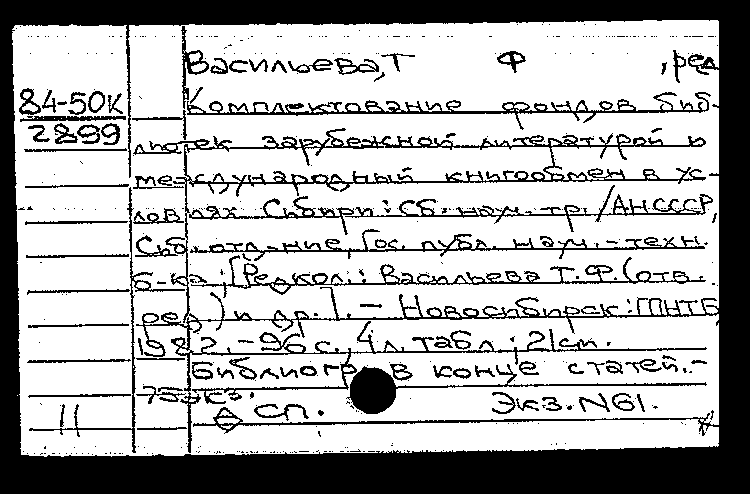 Васильева, Т Ф , ред
84-50К
2899
Комплектование фондов биб-
лиотек зарубежной литературой и
международный книгообмен в ус-
ловиях Сибири : Сб. науч. тр. / АН СССР,
Сиб. отд-ние, Гос. публ. науч.-техн.
б-ка ; [Редкол.: Васильева Т. Ф. (отв.
ред.) и др.]. - Новосибирск : ГПНТБ,
1982. - 96 с., 4 л. табл. ; 21 см.
Библиогр. в конце статей. -
75 экз.
11 СП. Экз. N61.